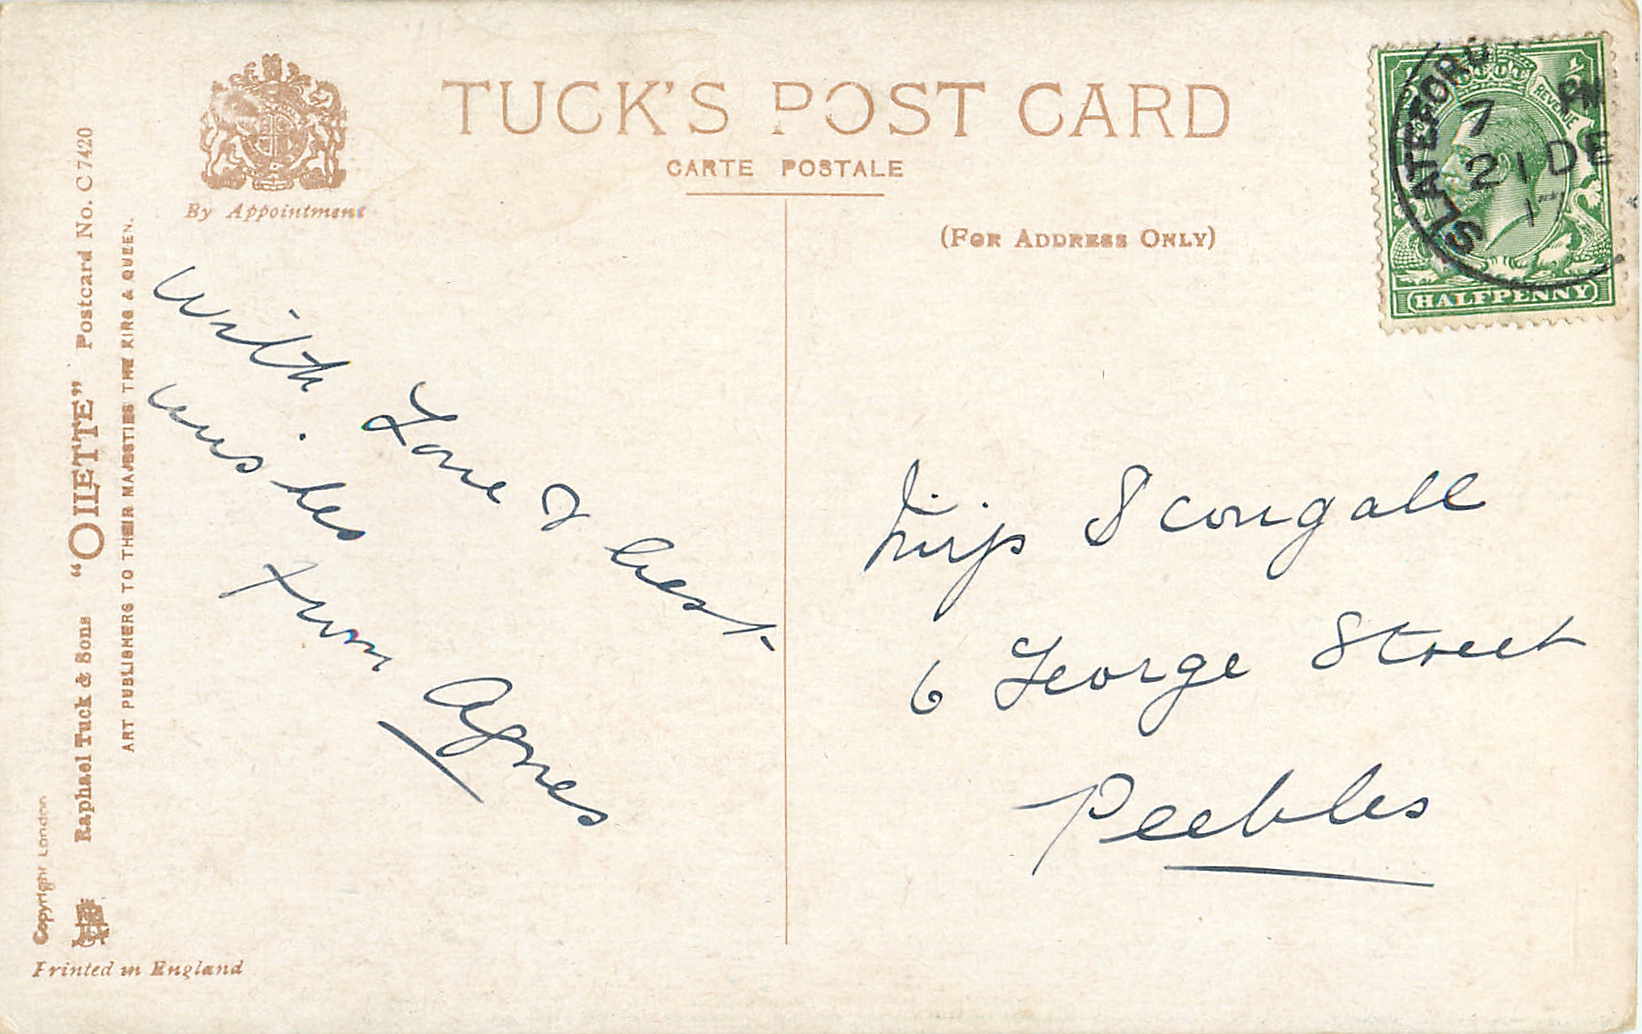 TUCK'S POST CARD
CARTE POSTALE
(FOR ADDRESS ONLY)
By Appointment
Copyright London
Raphael Tuck & Sons "OILETTE" Postcard No. C 7420
ART PUBLISHERS TO THEIR MAJESTIES THE KING & QUEEN.
Printed in England
With Love & best
wishes
from Agnes
SLATEFORD
7 PM
21 DE
REVENUE
HALFPENNY
Miss Scougall
6 George Street
Peebles